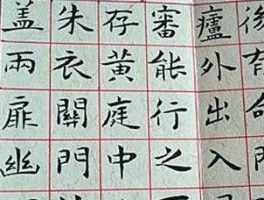 後有命門
廬外出入
審能行之
存黄庭中
朱衣關門
盖兩扉幽